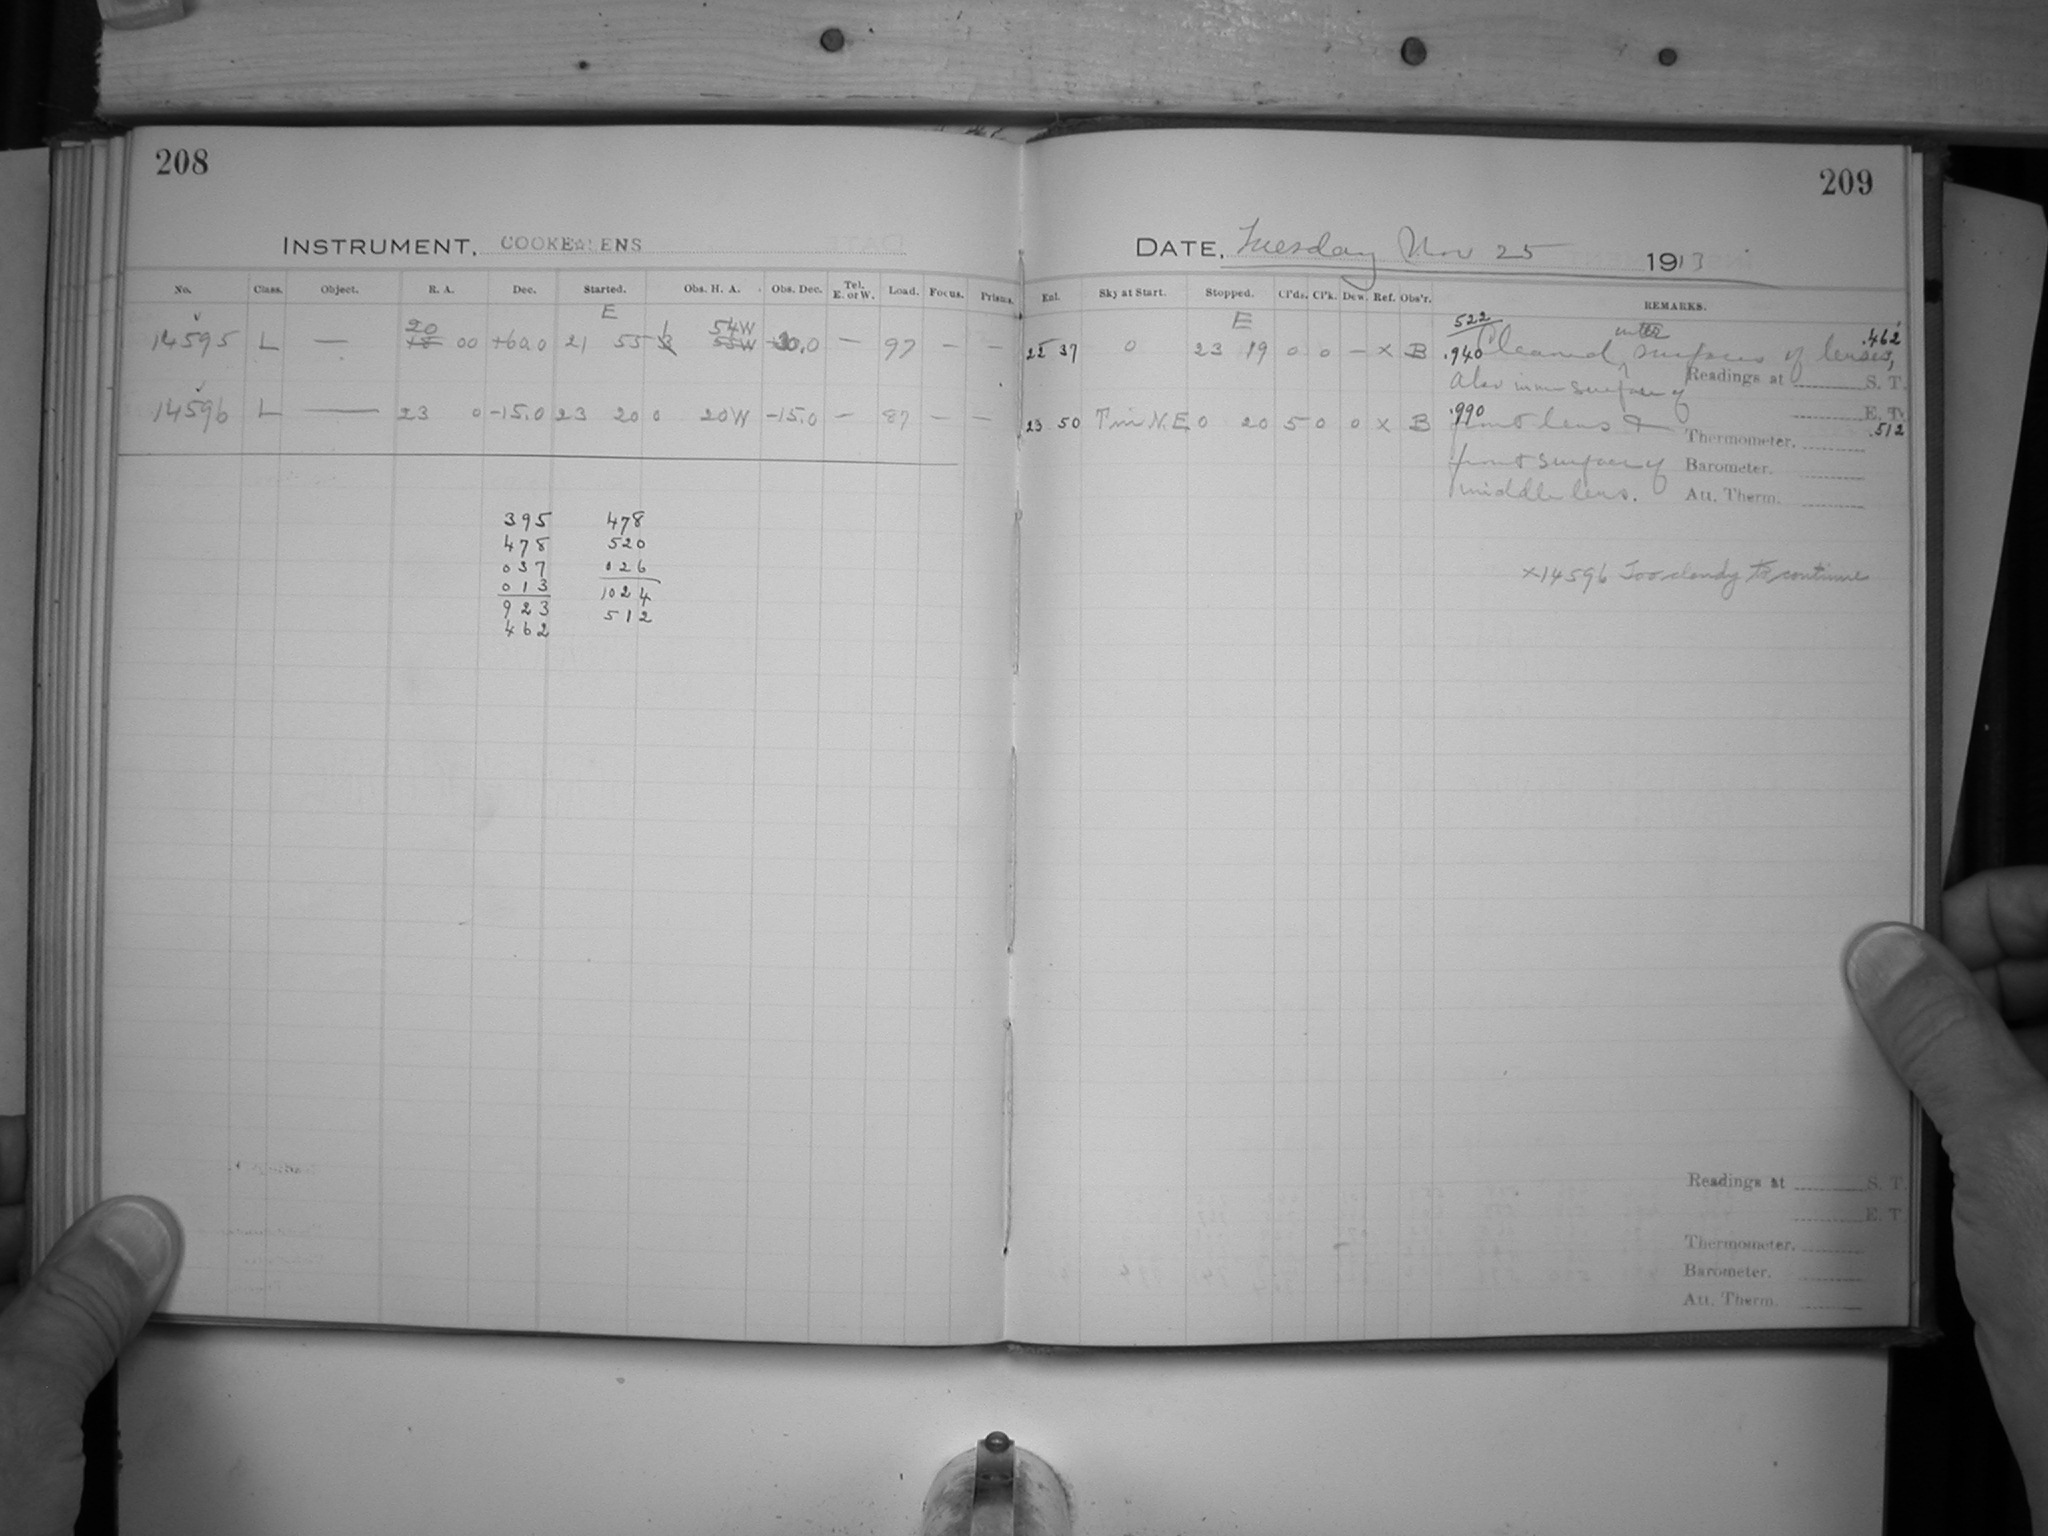 208
INSTRUMENT, COOKE LENS
No. Class. Object. R. A. Dec. Started. Obs. H. A. Obs. Dec. Tel. E. or W. Load. Focus. Prisms.
E
20 1 54W
14595 L — 18 00 +60.0 21 55 3 55W 0.0 — 97 — —
14596 L — 23 0 -15.0 23 20 0 20W -15.0 — 87 — —
395 478
478 520
037 026
013 1024
923 512
462
209
DATE, Tuesday Nov 25 1913
Ent. Sky at Start. Stopped. Cl'ds. Cl'k. Dew. Ref. Obs'r. REMARKS.
E 522 outer .462
22 37 0 23 19 0 0 — x B .940 Cleaned surfaces of lenses,
Also inner surface of Readings at S. T.
.990 E. T.
23 50 T in N.E. 0 20 5 0 0 x B front lens & Thermometer. .512
front surface of Barometer.
middle lens. Att. Therm.
x14596 Too cloudy to continue
Readings at S. T.
E. T.
Thermometer.
Barometer.
Att. Therm.